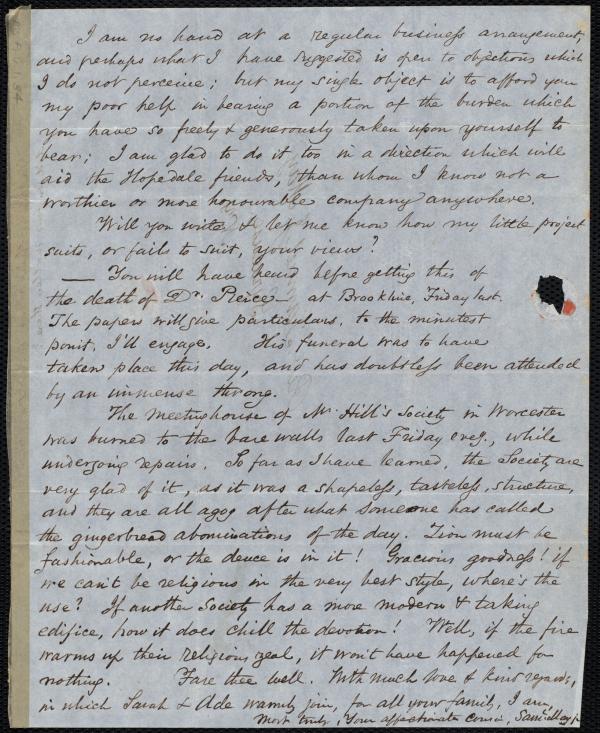 I am no hand at a regular business arrangement,
and perhaps what I have suggested is open to objections which
I do not perceive; but my single object is to afford you
my poor help in bearing a portion of the burden which
you have so freely & generously taken upon yourself to
bear; I am glad to do it, too in a direction which will
aid the Hopedale friends, than whom I know not a
worthier or more honourable company anywhere.
Will you write & let me know how my little project
suits, or fails to suit, your views?
— You will have heard before getting this of
the death of Dr. Pierce — at Brookline, Friday last.
The papers will give particulars, to the minutest
point, I'll engage. His funeral was to have
taken place this day, and has doubtless been attended
by an immense throng.
The Meetinghouse of Mr. Hill's Society in Worcester
was burned to the bare walls last Friday eveg., while
undergoing repairs. So far as I have learned, the Society are
very glad of it, as it was a shapeless, tasteless, structure,
and they are all agog after what someone has called
the gingerbread abominations of the day. Zion must be
fashionable, or the deuce is in it! Gracious goodness! if
we can't be religious in the very best style, where's the
use? If another Society has a more modern & taking
edifice, how it does chill the devotion! Well, if the fire
warms up their religious zeal, it won't have happened for
nothing. Fare thee well. With much love & kind regards,
in which Sarah & Ade warmly join, for all your family, I am,
most truly, Your affectionate cousin, Saml May Jr.